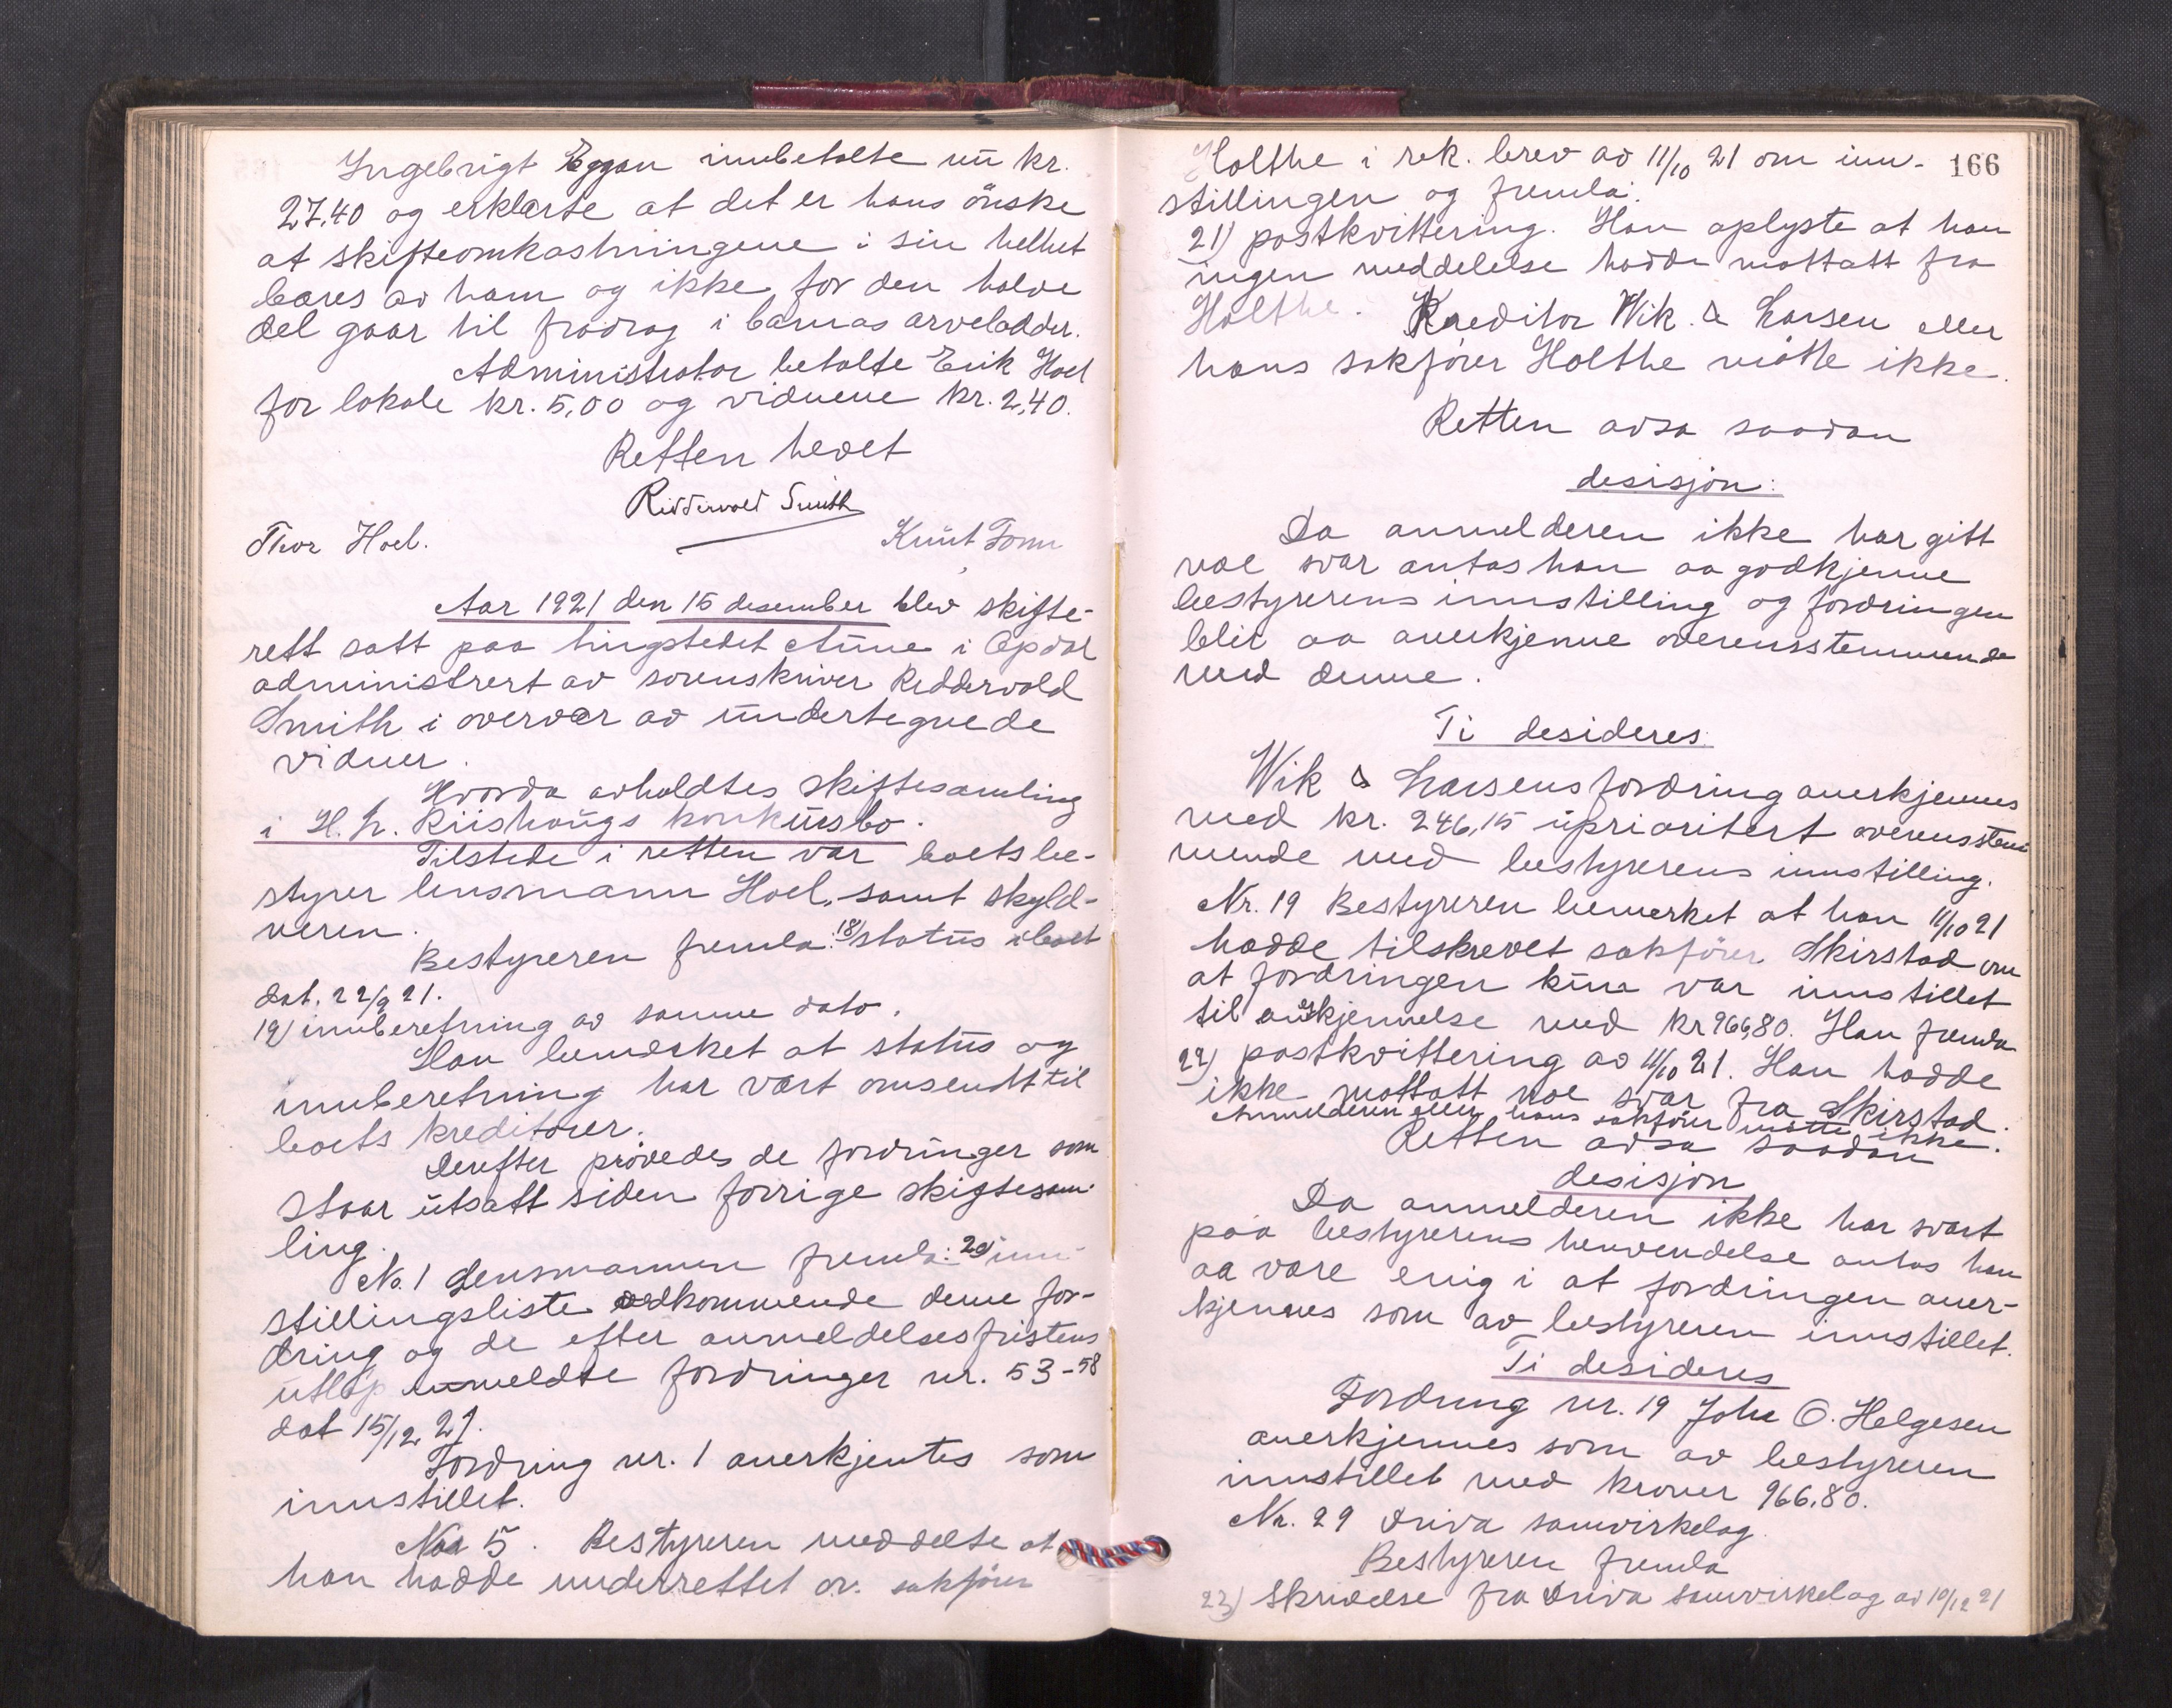 Ingebrigt Eggan innbetalte nu kr.
27,40 og erklærte at det er hans ønske
at skifteomkostningene i sin helhet
bæres av ham og ikke for den halve
del gaar til fradrag i barnas arvelodder.
Administrator betalte Erik Hoel
for lokale kr. 5,00 og vidnene kr. 2,40.
Retten hevet
Riddervold Smith
Thor Hoel. Knut Tonn
Aar 1921 den 15 desember blev skifte-
rett satt paa tingstedet Aune i Opdal
administrert av sorenskriver Riddervold
Smith i overvær av undertegnede
vidner.
Hvorda avholdtes skiftesamling
i H. L. Riishaugs konkursbo.
Tilstede i retten var boets be-
styrer lensmann Hoel, samt skyld-
neren.
Bestyreren fremla: 18) status i boet
dat. 22/9 21.
19) innberetning av samme dato.
Han bemerket at status og
innberetning har vært omsendt til
boets kreditorer.
Derefter prøvedes de fordringer som
staar utsatt siden forrige skiftesam-
ling.
No. 1 Lensmannen fremla: 20 inn-
stillingsliste vedkommende denne for-
dring og de efter anmeldelsesfristens
utløp anmeldte fordringer nr. 53-58
dat 15/12 21.
Fordring nr. 1 anerkjentes som
innstillet.
No 5. Bestyreren meddelte at
han hadde underrettet or. sakfører
166
Holthe i rek. brev av 11/10 21 om inn-
stillingen og fremla:
21) postkvittering. Han oplyste at han
ingen meddelelse hadde mottatt fra
Holthe. Kreditor Wik & Larsen eller
hans sakfører Holthe møtte ikke.
Retten avsa saadan
desisjon:
Da anmelderen ikke har gitt
noe svar antas han aa godkjenne
bestyrerens innstilling og fordringen
blir aa anerkjenne overensstemmende
med denne.
Ti desideres:
Wik & Larsens fordring anerkjennes
med kr. 246,15 uprioritert overensstem-
mende med bestyrerens innstilling.
Nr. 19 Bestyreren bemerket at han 11/10 21
hadde tilskrevet sakfører Skirstad om
at fordringen kun var innstillet
til anerkjennelse med kr 966,80. Han fremla
22) postkvittering av 11/10 21. Han hadde
ikke mottatt noe svar fra Skirstad.
Anmelderen eller hans sakfører møtte ikke.
Retten avsa saadan
desisjon
Da anmelderen ikke har svart
paa bestyrerens henvendelse antas han
aa være enig i at fordringen aner-
kjennes som av bestyreren innstillet.
Ti desideres
Fordring nr. 19 Johs O. Helgesen
anerkjennes som av bestyreren
innstillet med kroner 966,80.
Nr. 29 Driva samvirkelag.
Bestyreren fremla
23) skrivelse fra Driva samvirkelag av 10/12 21